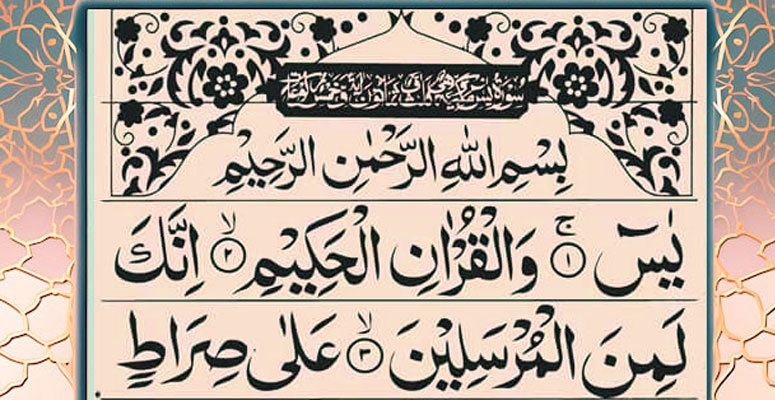 سُوْرَةُ يٰسٓ مَكِّيَّةٌ وَّهِيَ ثَلٰثٌ وَّثَمَانُوْنَ اٰيَةً وَّخَمْسُ رُكُوْعَاتٍ
بِسْمِ اللّٰهِ الرَّحْمٰنِ الرَّحِيْمِ
يٰسٓ ۚ ﴿۱﴾ وَالْقُرْاٰنِ الْحَكِيْمِ ۙ ﴿۲﴾ اِنَّكَ
لَمِنَ الْمُرْسَلِيْنَ ۙ ﴿۳﴾ عَلٰى صِرَاطٍ